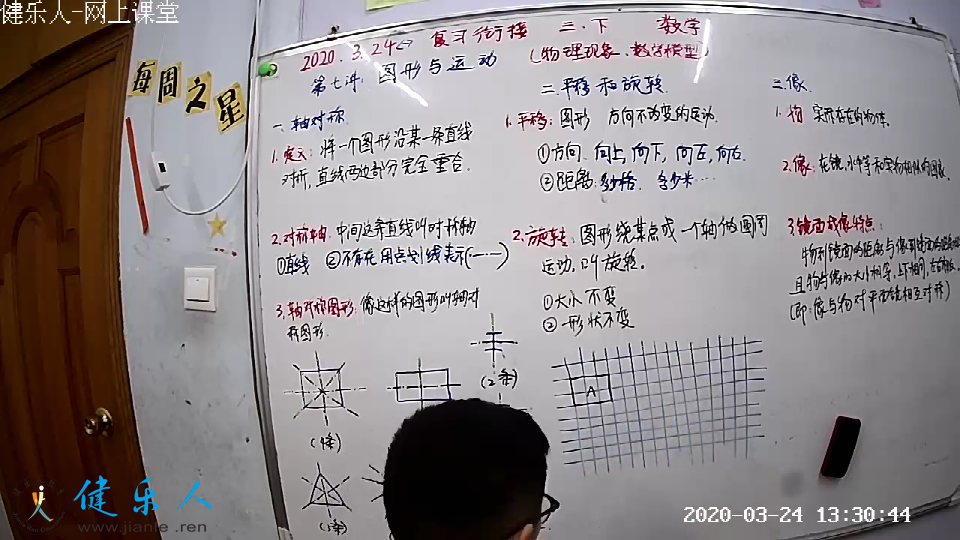 健乐人-网上课堂
每周之星
2020.3.24 复习衔接 三.下 数学
第七讲: 图形与运动
(物理现象.数学模型)
一.轴对称
1.定义: 将一个图形沿某一条直线
对折,直线两边部分完全重合.
2.对称轴: 中间这条直线叫对称轴
①直线 ②不存在用点划线表示(-·-·-)
3.轴对称图形: 像这样的图形叫轴对
称图形.
(2条)
(4条)
(1条)
二.平移和旋转
1.平移: 图形 方向不改变的运动.
①方向. 向上,向下,向左,向右.
②距离: 多少格. 多少米…
2.旋转: 图形绕某点或一个轴做圆周
运动.叫旋转.
①大小不变
②形状不变
A
三.像.
1.物 实际存在的物体.
2.像: 在镜,水中等和实物相似的图象.
3.镜面成像特点:
物到镜面的距离与像到镜面的距离
且物与像的大小相等,上下相同,左右相反.
(即:像与物对平面镜相互对称)
健乐人
www.jianle.ren
2020-03-24 13:30:44